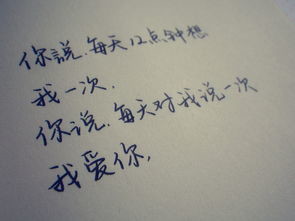 你說.每天12点钟想
我一次.
你说.每天对我说一次
我爱你,